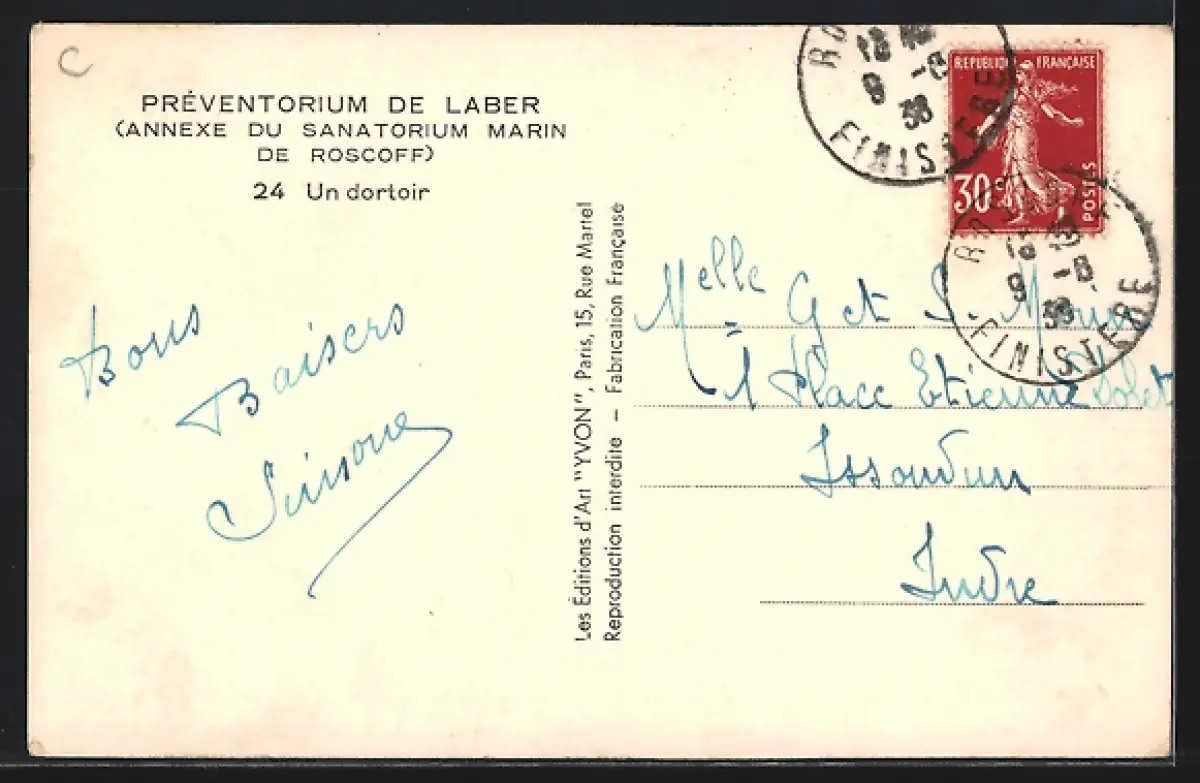 C
PRÉVENTORIUM DE LABER
(ANNEXE DU SANATORIUM MARIN
DE ROSCOFF)
24 Un dortoir
Bons
Baisers
Simone
Les Éditions d'Art "YVON", Paris, 15, Rue Martel
Reproduction interdite – Fabrication Française
REPUBLIQUE FRANÇAISE
30c
POSTES
RO
18
9 -8
38
FINISTERE
RO
18
9 -8
38
FINISTERE
Melle G et S. Morin
1 Place Etienne Dolet
Issoudun
Indre